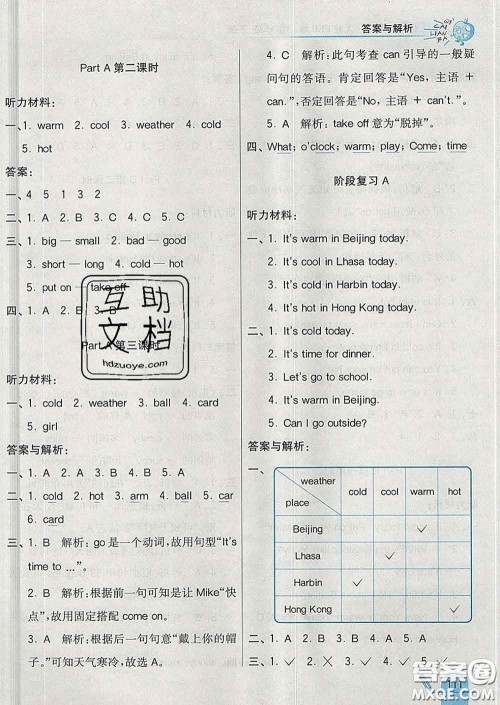 答案与解析
Part A 第二课时
听力材料：
一、1. warm 2. cool 3. weather 4. cold
5. hot
答案：
一、4 5 1 3 2
二、1. A 2. B 3. B 4. C 5. C
三、1. big — small 2. bad — good
3. short — long 4. cold — hot
5. put on — take off
四、1. A 2. B 3. B
Part A 第三课时
听力材料：
一、1. cold 2. weather 3. ball 4. card
5. girl
答案与解析：
一、1. A 2. B 3. A 4. B 5. A
二、1. cold 2. hot 3. arm 4. ball 5. car
6. card
三、1. B 解析：go 是一个动词，故用句型“It's
time to ...”。
2. B 解析：根据前一句可知是让 Mike“快
点”，故用固定搭配 come on。
3. A 解析：根据后一句句意“戴上你的帽
子。”可知天气寒冷，故选 A。
4. C 解析：此句考查 can 引导的一般疑
问句的答语。肯定回答是“Yes，主语 +
can.”，否定回答是“No，主语 + can't.”。
5. A 解析：take off 意为“脱掉”。
四、What; o'clock; warm; play; Come; time
阶段复习 A
听力材料：
一、1. It's warm in Beijing today.
2. It's cool in Lhasa today.
3. It's cold in Harbin today.
4. It's hot in Hong Kong today.
二、1. It's cold today.
2. It's time for dinner.
3. Let's go to school.
4. It's warm today.
5. Can I go outside?
答案与解析：
一、
weather
place
cold cool warm hot
Beijing ✓
Lhasa ✓
Harbin ✓
Hong Kong ✓
二、1. A 2. B 3. B 4. A 5. A
三、1. ✓ 2. × 3. ✓ 4. ✓ 5. ×
互助
文档
hdzuoye.com
答案圈
MXQE.COM